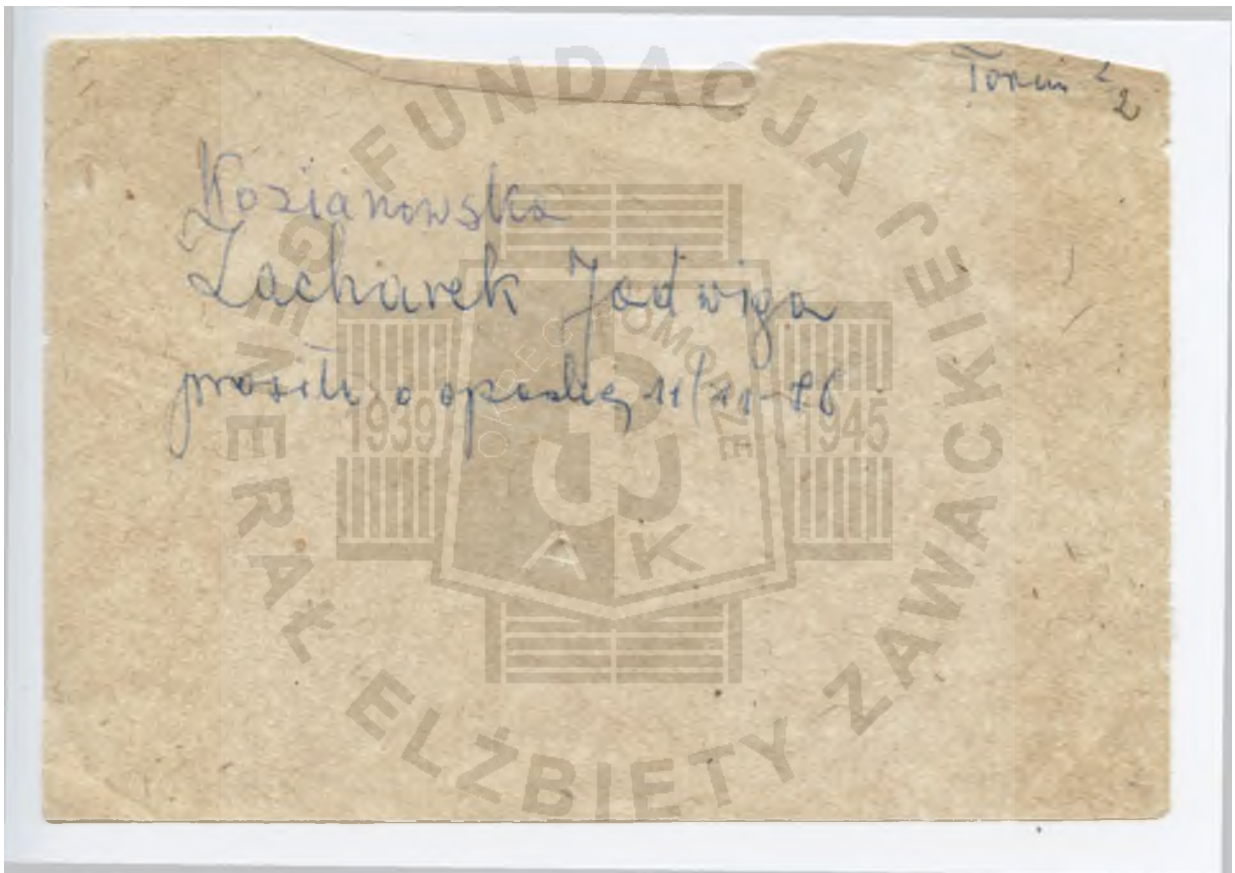 Toruń 2
2
Kozianowska
Zacharek Jadwiga
prosiła o opaskę 11/11-86
FUNDACJA GENERAŁ ELŻBIETY ZAWACKIEJ
OKRĘG POMORZE
1939 1945
AK